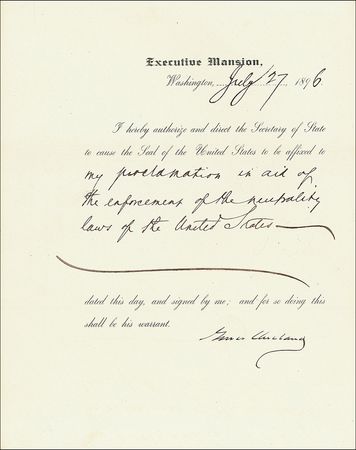 Executive Mansion,
Washington, July 27 1896.
I hereby authorize and direct the Secretary of State
to cause the Seal of the United States to be affixed to
my proclamation in aid of
the enforcement of the neutrality
laws of the United States
dated this day, and signed by me; and for so doing this
shall be his warrant.
Grover Cleveland